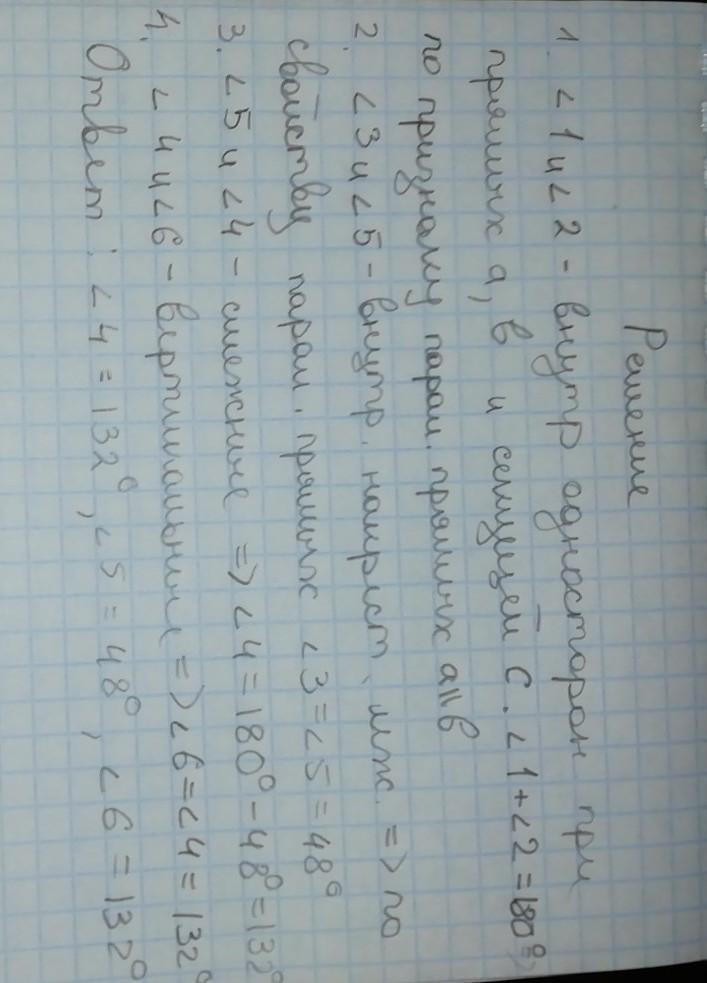 Решение
1. <1 и <2 - внутр одностерон при
прямых а, в и секущей с. <1+<2=180°=>
по признаку парал. прямых а||в
2. <3 и <5 - внутр. накрест. леж. => по
свойству парал. прямых <3=<5=48°
3. <5 и <4 - смежные => <4=180°-48°=132°
4. <4 и <6 - вертикальные => <6=<4=132°
Ответ: <4=132°, <5=48°, <6=132°